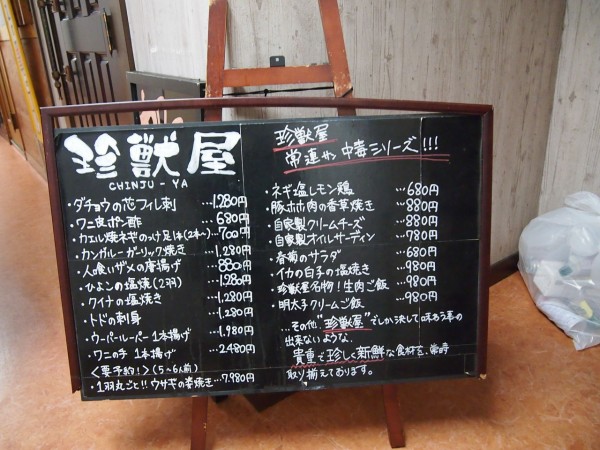 珍獣屋
CHINJU-YA
・ダチョウの花フィレ刺 …1,280円
・ワニ皮ポン酢 …680円
・カエル焼ネギのっけ足1本(2本〜)…700円
・カンガルーガーリック焼き …1,280円
・人喰いザメの唐揚げ …880円
・ひよこの塩焼(2羽) …1,280円
・クイナの塩焼き …1,280円
・トドの刺身 …1,280円
・ウーパールーパー1本揚げ …1,980円
・ワニの手 1本揚げ …2,480円
<要予約!>(5〜6人前)
・1羽丸ごと!!ウサギの姿焼き…7,980円
珍獣屋
常連や 中毒シリーズ!!!
・ネギ塩レモン鶏 …680円
・豚ホホ肉の香草焼き …880円
・自家製クリームチーズ …880円
・自家製オイルサーディン …780円
・春菊のサラダ …680円
・イカの白子の塩焼き …980円
・珍獣屋名物!生肉ご飯 …980円
・明太子クリームご飯 …980円
…その他、"珍獣屋"でしか決して味わう事の
出来ないような、
貴重で珍しく新鮮な食材を、常時
取り揃えております。